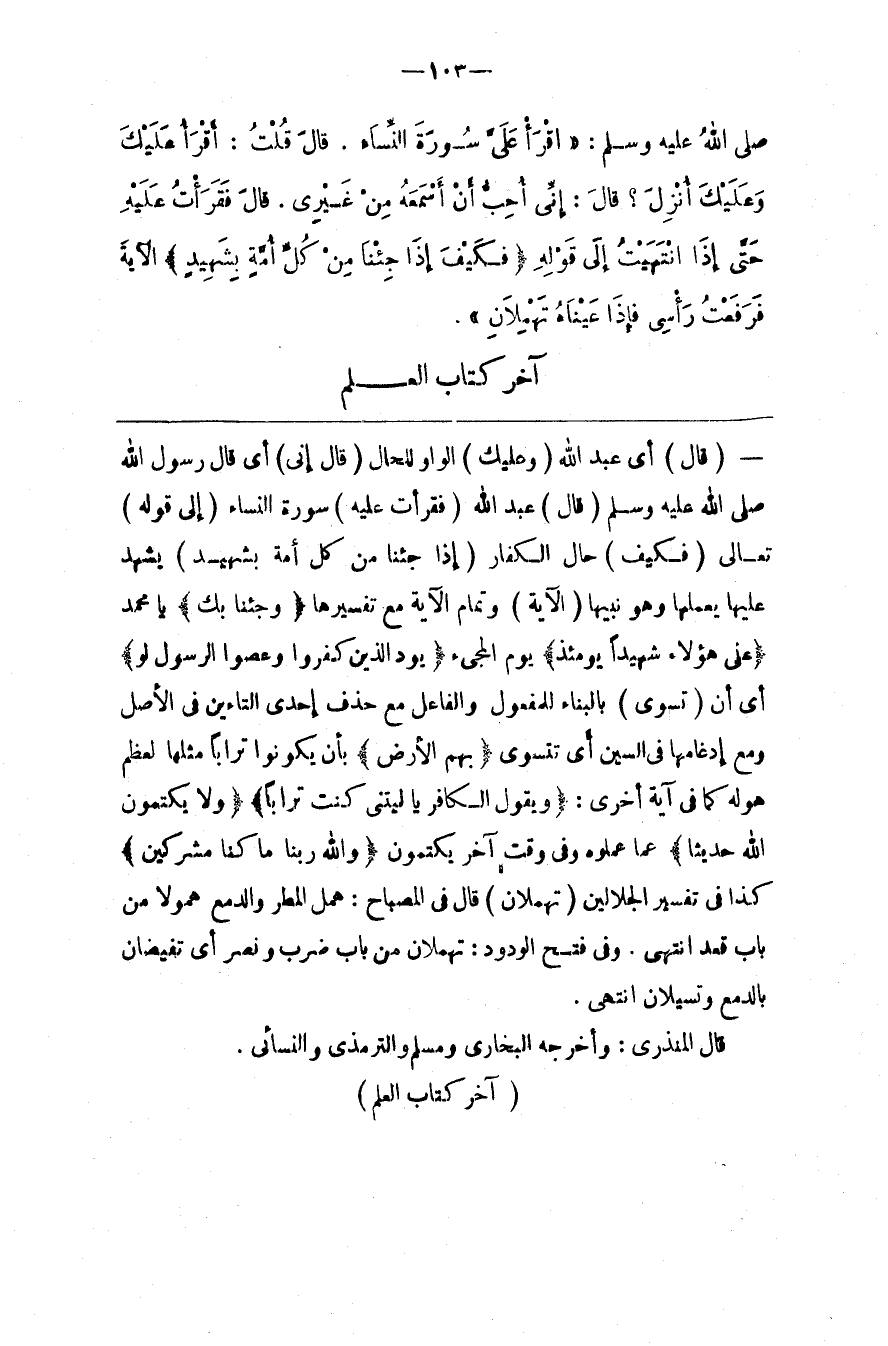 —١٠٣—
صلى اللهُ عليه وسلم : « اقْرَأْ عَلَيَّ سُورَةَ النِّسَاء . قالَ قُلْتُ : أَقْرَأُ عَلَيْكَ
وَعَلَيْكَ أُنْزِلَ ؟ قالَ : إِنِّى أُحِبُّ أَنْ أَسْمَعَهُ مِنْ غَيْرِى . قالَ فَقَرَأْتُ عَلَيْهِ
حَتَّى إِذَا انْتَهَيْتُ إِلَى قَوْلِهِ ﴿ فَكَيْفَ إِذَا جِئْنَا مِنْ كُلِّ أُمَّةٍ بِشَهِيدٍ ﴾ الآيةَ
فَرَفَعْتُ رَأْسِى فَإِذَا عَيْنَاهُ تَهْمِلَانِ » .
آخر كتاب العــــلم
— ( قال ) أى عبد الله ( وعليك ) الواو للحال ( قال إنى ) أى قال رسول الله
صلى الله عليه وسلم ( قال ) عبد الله ( فقرأت عليه ) سورة النساء ( إلى قوله )
تعـالى ( فـكيف ) حال الـكفار ( إذا جئنا من كل أمة بشهيـد ) يشهد
عليها بعملها وهو نبيها ( الآية ) وتمام الآية مع تفسيرها ﴿ وجئنا بك ﴾ يا محمد
﴿على هؤلاء شهيداً يومئذ﴾ يوم المجىء ﴿ يود الذين كفروا وعصوا الرسول لو﴾
أى أن ( تسوى ) بالبناء للمفعول والفاعل مع حذف إحدى التاءين فى الأصل
ومع إدغامها فى السين أى تتسوى ﴿ بهم الأرض ﴾ بأن يكونوا تراباً مثلها لعظم
هوله كما فى آية أخرى : ﴿ ويقول الـكافر يا ليتنى كنت تراباً﴾ ﴿ ولا يكتمون
الله حديثا﴾ عما عملوه وفى وقت آخر يكتمون ﴿ والله ربنا ما كنا مشركين ﴾
كذا فى تفسير الجلالين ( تهملان ) قال فى المصباح : همل المطر والدمع همولا من
باب قعد انتهى . وفى فتـح الودود : تهملان من باب ضرب ونصر أى تفيضان
بالدمع وتسيلان انتهى .
قال المنذرى : وأخرجه البخارى ومسلم والترمذى والنسائى .
( آخر كتاب العلم )